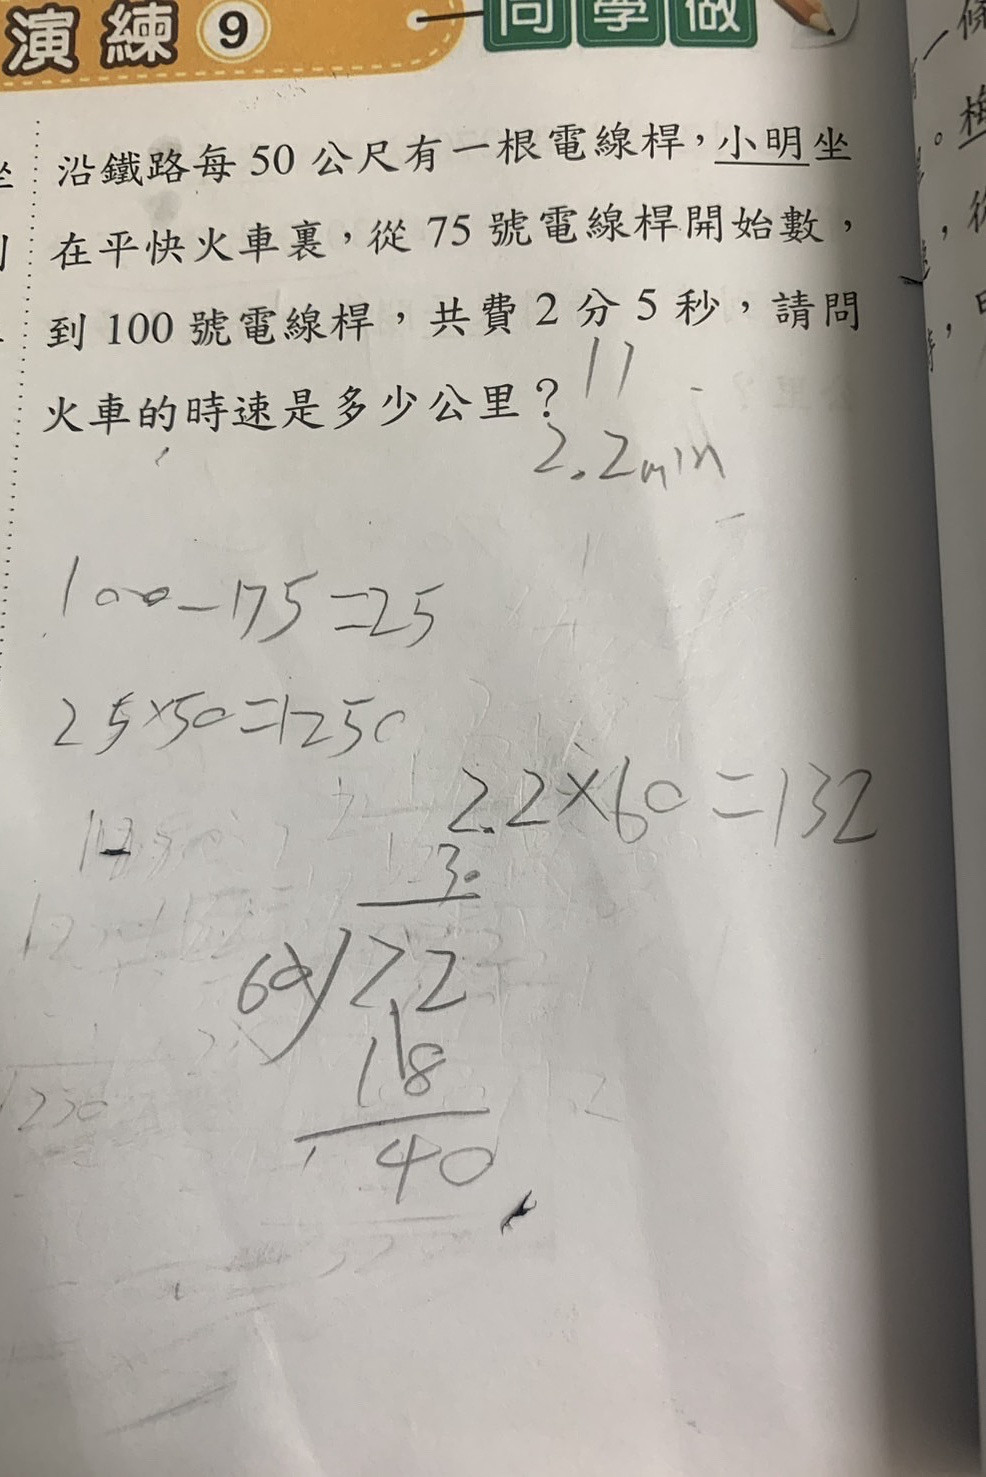 演練 9 同學做
沿鐵路每 50 公尺有一根電線桿，小明坐
在平快火車裏，從 75 號電線桿開始數，
到 100 號電線桿，共費 2 分 5 秒，請問
火車的時速是多少公里？
11
2.2min
100-175=25
25×50=1250
2.2×60=132
3.
60 22
18
40